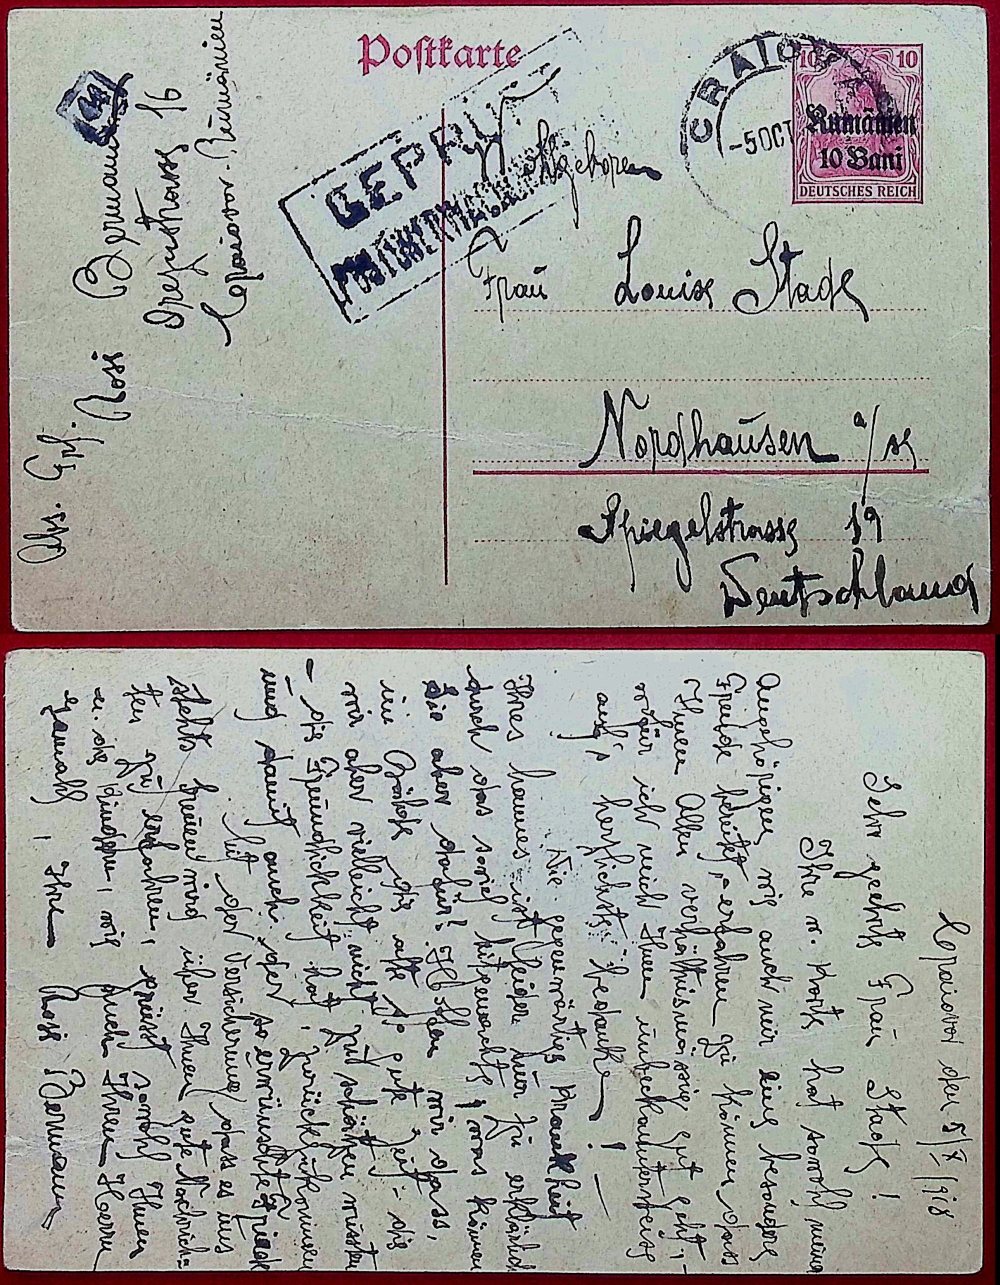 Postkarte
GEPRÜFT
CRAIOVA
-5 OCT
10 10
Rumänien
10 Bani
DEUTSCHES REICH
Frau Louise Stade
Nordhausen a/
Spiegelstrasse 19
Deutschland
Abs. Rosi Bermann
16
Craiova. Rumänien
Craiova den 5/X 1918
Sehr geehrte Frau Stade!
Ihre w. Karte hat sowohl meine
Angehörigen, wie auch mir eine besondere
Freude bereitet, erfahren zu können, dass
Ihnen Allen verhältnismässig gut geht,
wofür ich mich Ihnen unbekannterweise
auf's herzlichste bedanke! —
Die gegenwärtige Krankheit
Ihres Mannes ist leider nur zu erklärlich
durch das soviel Mitgemachte, was können
Sie aber dafür? Hoffen wir dass,
die alte so gute Zeit - die
wir aber vielleicht nicht zu schätzen wussten
- die Freundlichkeit hat, zurückzukommen
und damit auch der so erwünschte Friede
Mit der Versicherung, dass es uns
stets freuen wird über Ihnen gute Nachrich-
ten zu erfahren, grüsst sowohl Ihnen
u. die Kinder, wie auch Ihren Herrn
Gemahl, Ihre Rosi Bermann